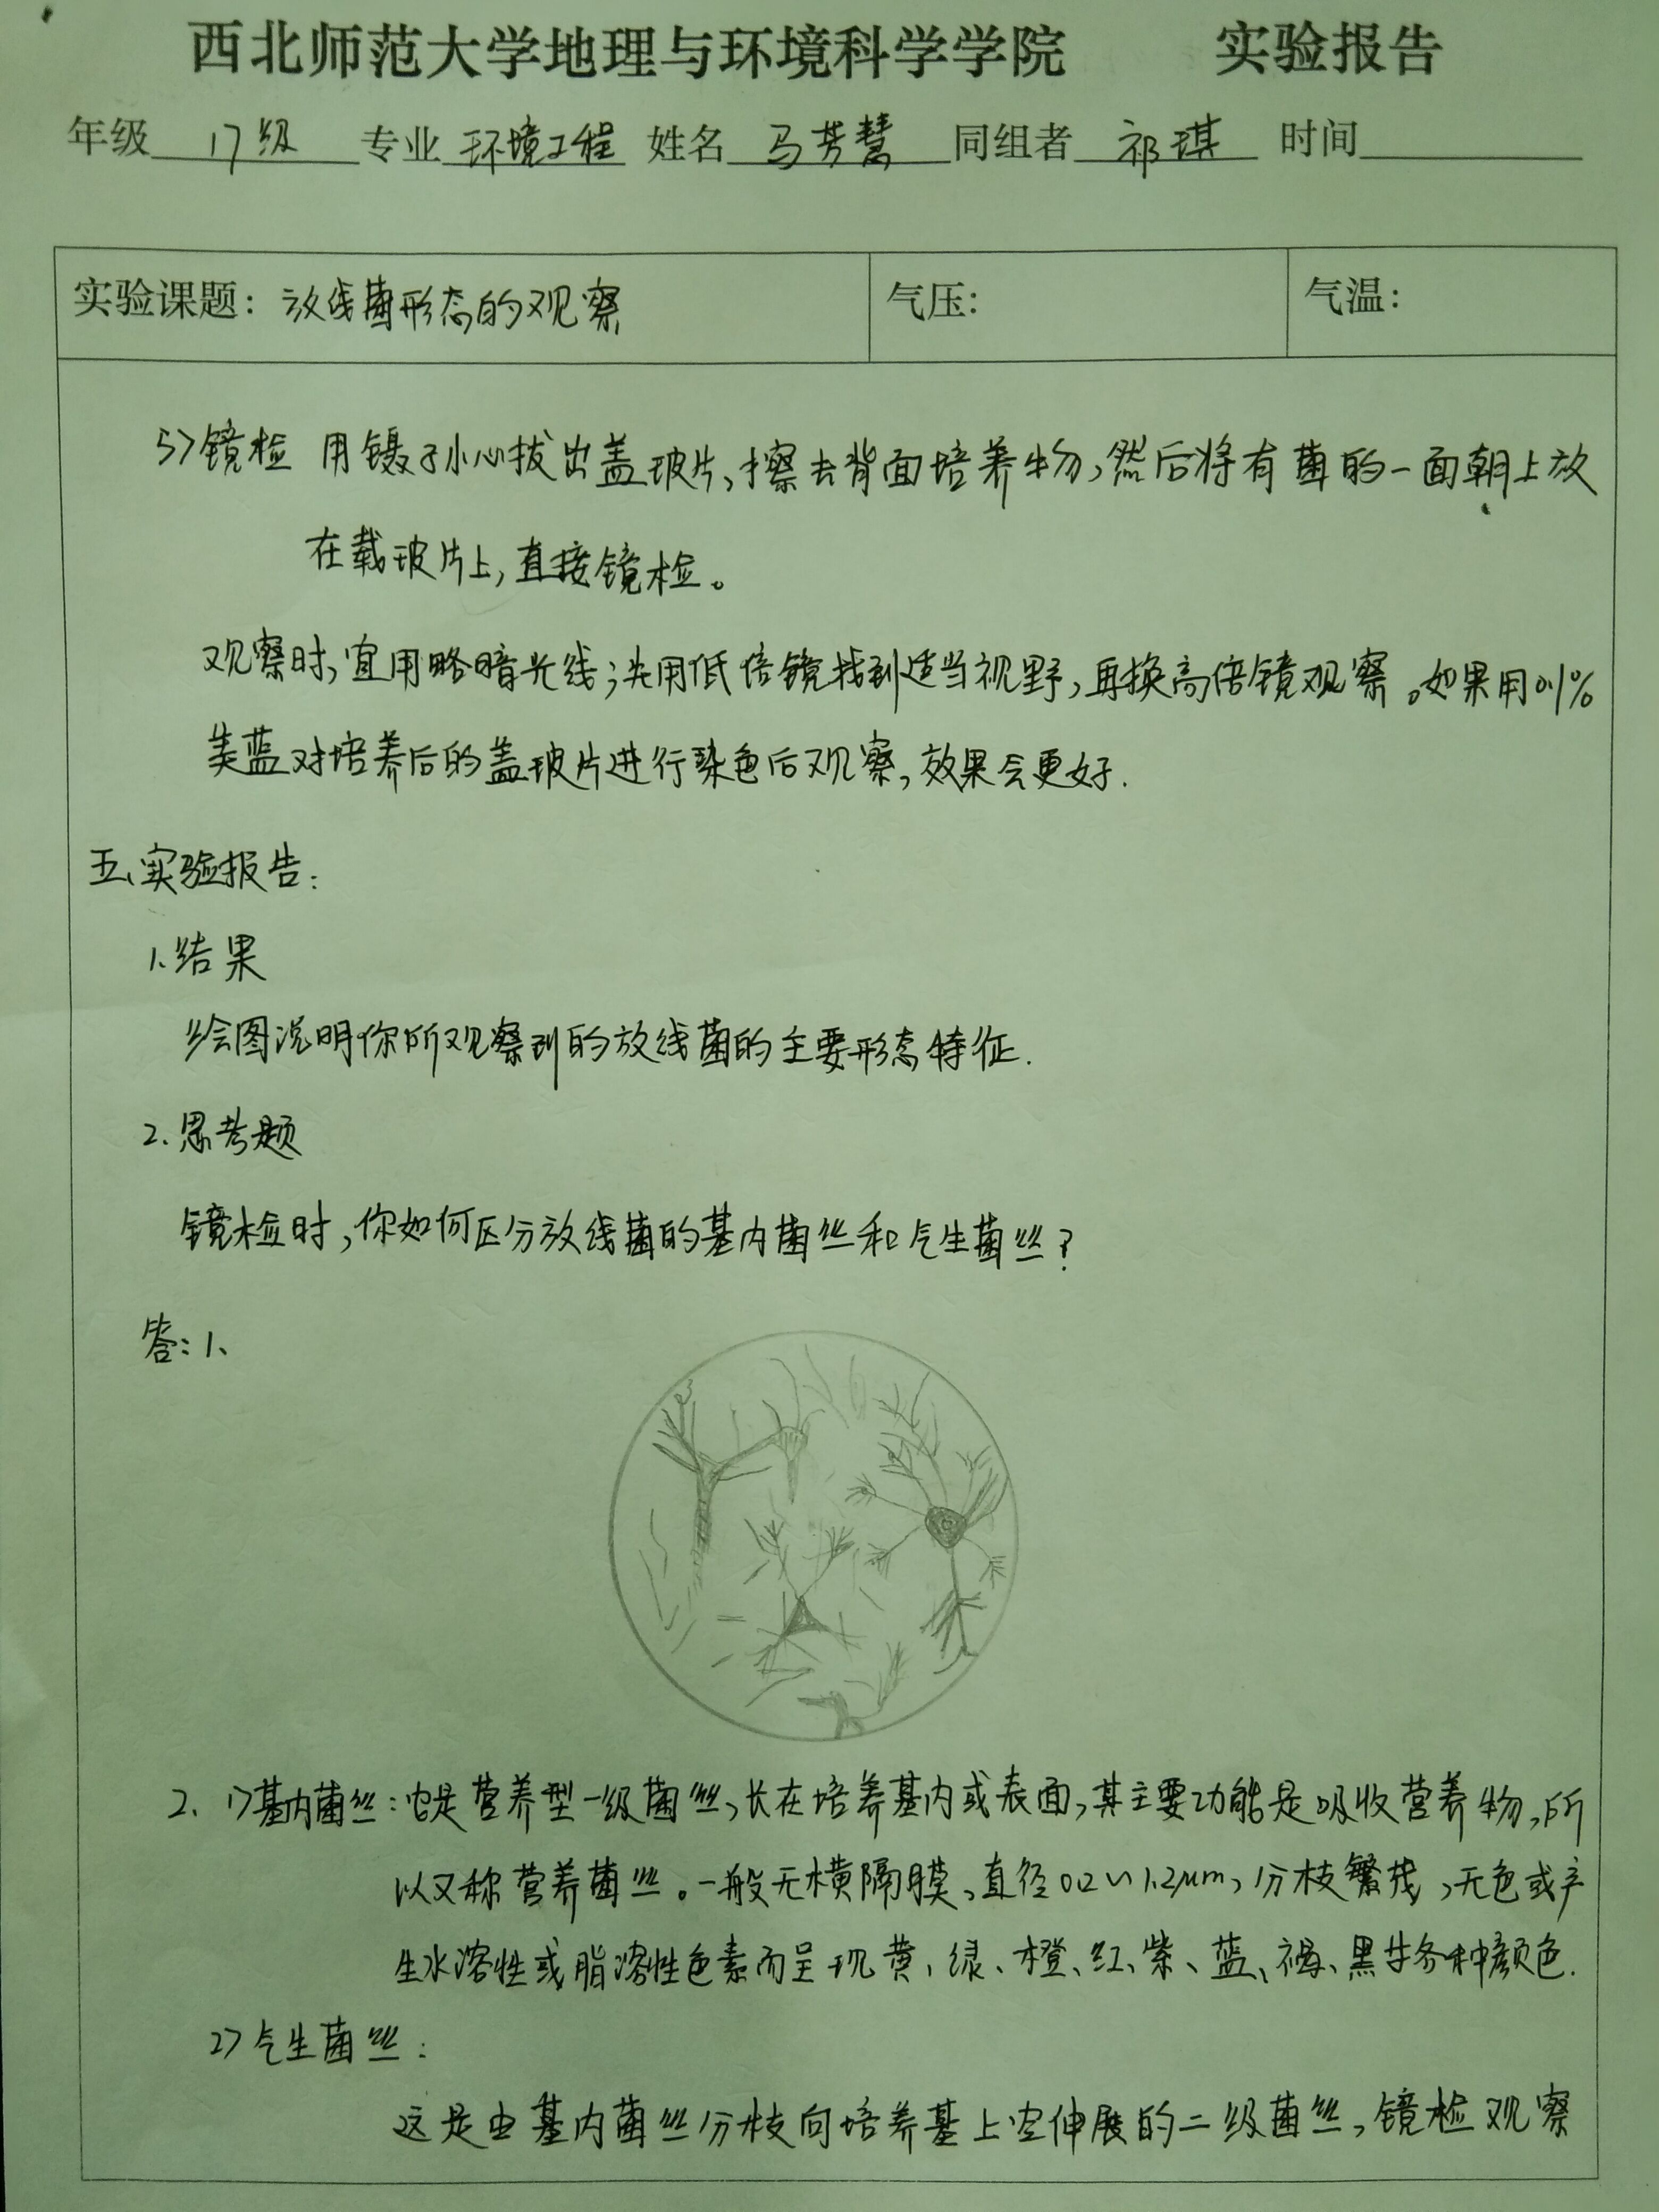 西北师范大学地理与环境科学学院 实验报告
年级 17级 专业 环境工程 姓名 马芳慧 同组者 祁琪 时间
实验课题：放线菌形态的观察 气压： 气温：
5)镜检 用镊子小心拔出盖玻片,擦去背面培养物,然后将有菌的一面朝上放
在载玻片上,直接镜检。
观察时,宜用略暗光线;先用低倍镜找到适当视野,再换高倍镜观察。如果用0.1%
美蓝对培养后的盖玻片进行染色后观察,效果会更好.
五、实验报告:
1.结果
绘图说明你所观察到的放线菌的主要形态特征.
2.思考题
镜检时,你如何区分放线菌的基内菌丝和气生菌丝?
答:1、
2、1)基内菌丝:也是营养型一级菌丝,长在培养基内或表面,其主要功能是吸收营养物,所
以又称营养菌丝。一般无横隔膜,直径0.2~1.2μm,分枝繁茂,无色或产
生水溶性或脂溶性色素而呈现黄、绿、橙、红、紫、蓝、褐、黑等各种颜色.
2)气生菌丝:
这是由基内菌丝分枝向培养基上空伸展的二级菌丝,镜检观察